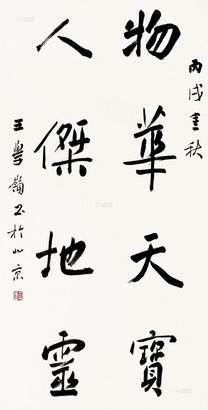 丙戌春秋
物華天寶
人傑地靈
王學嶺書於北京